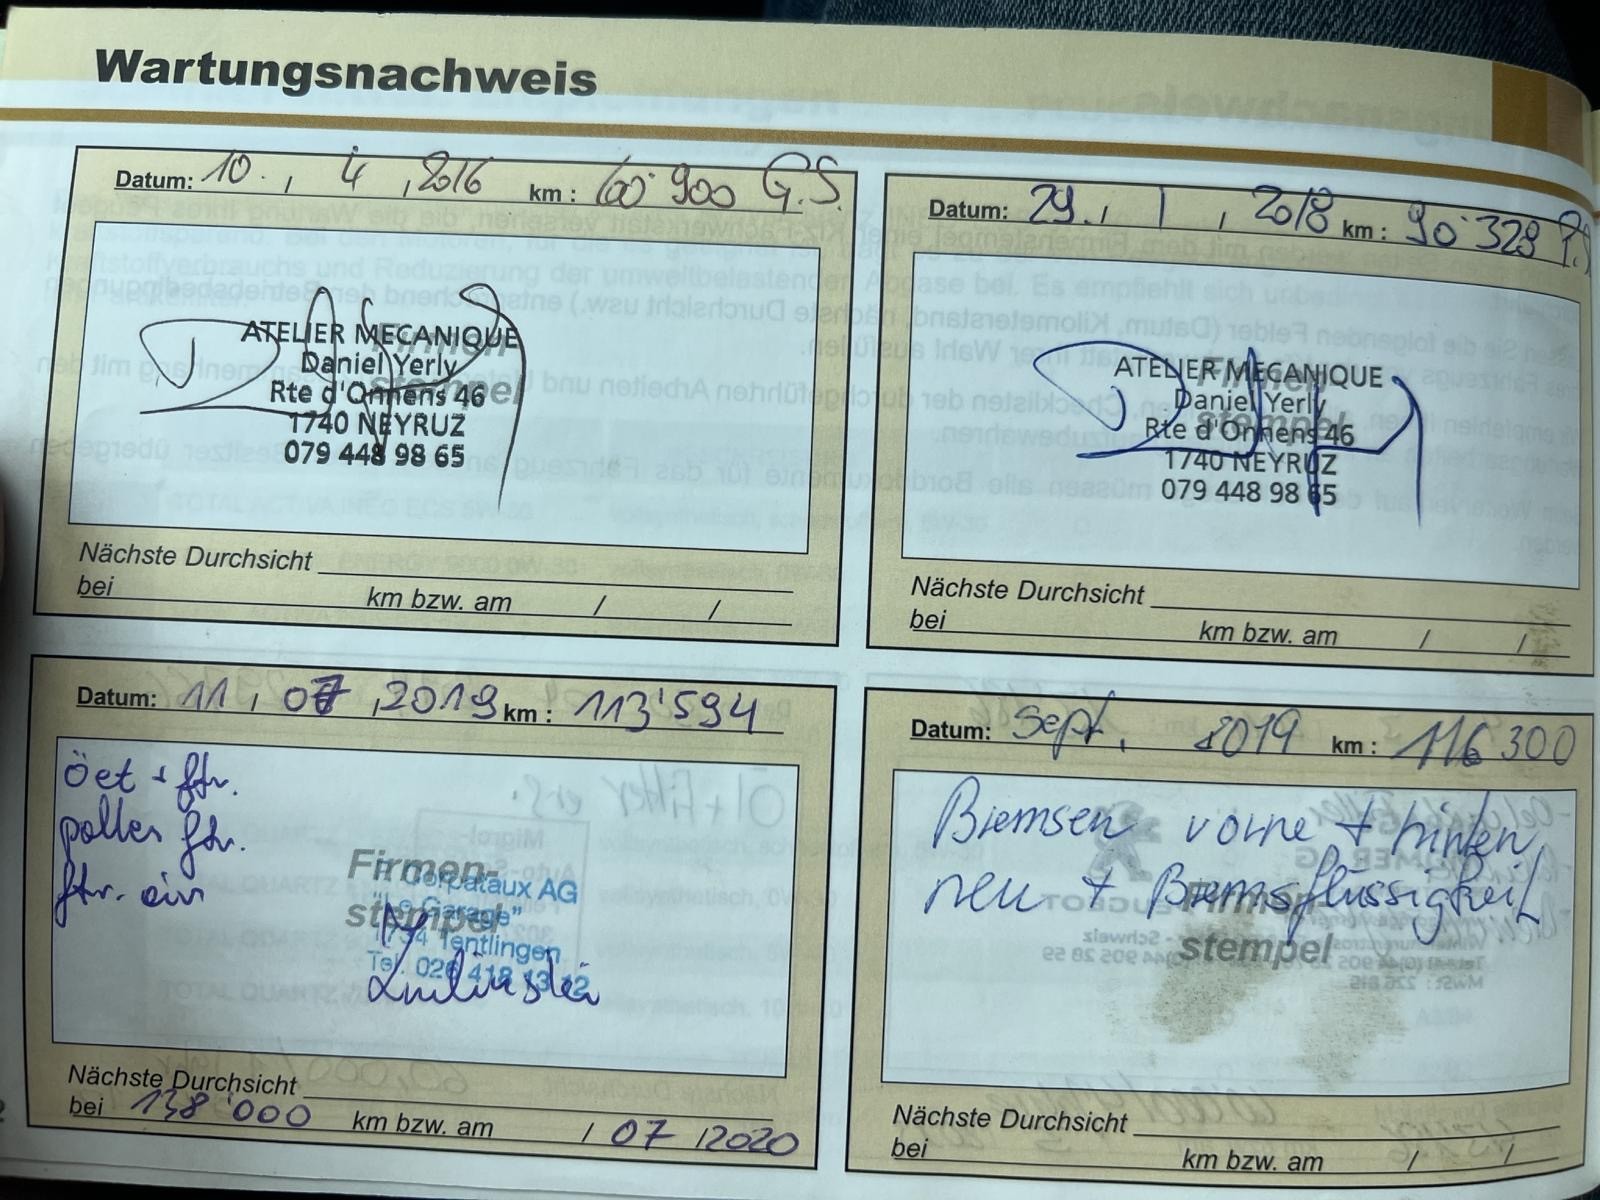 Wartungsnachweis
Datum: 10. , 4 , 2016 km : 60'900 G.S.
Firmen-
stempel
ATELIER MECANIQUE
Daniel Yerly
Rte d'Onnens 46
1740 NEYRUZ
079 448 98 65
Nächste Durchsicht
bei km bzw. am / /
Datum: 29. , 1 , 2018 km : 90'328
Firmen-
stempel
ATELIER MECANIQUE
Daniel Yerly
Rte d'Onnens 46
1740 NEYRUZ
079 448 98 65
Nächste Durchsicht
bei km bzw. am / /
Datum: 11 , 07 , 2019 km : 113'594
ftr.
pollen ftr.
ftr.
Firmen-
stempel
Corpataux AG
"Le Garage"
1734 Tentlingen
Tel. 026 418 13 12
Nächste Durchsicht
bei 138'000 km bzw. am / 07 / 2020
Datum: Sept. 2019 km : 116 300
Bremsen vorne + hinten
neu + Bremsflüssigkeit
Firmen-
stempel
Nächste Durchsicht
bei km bzw. am / /